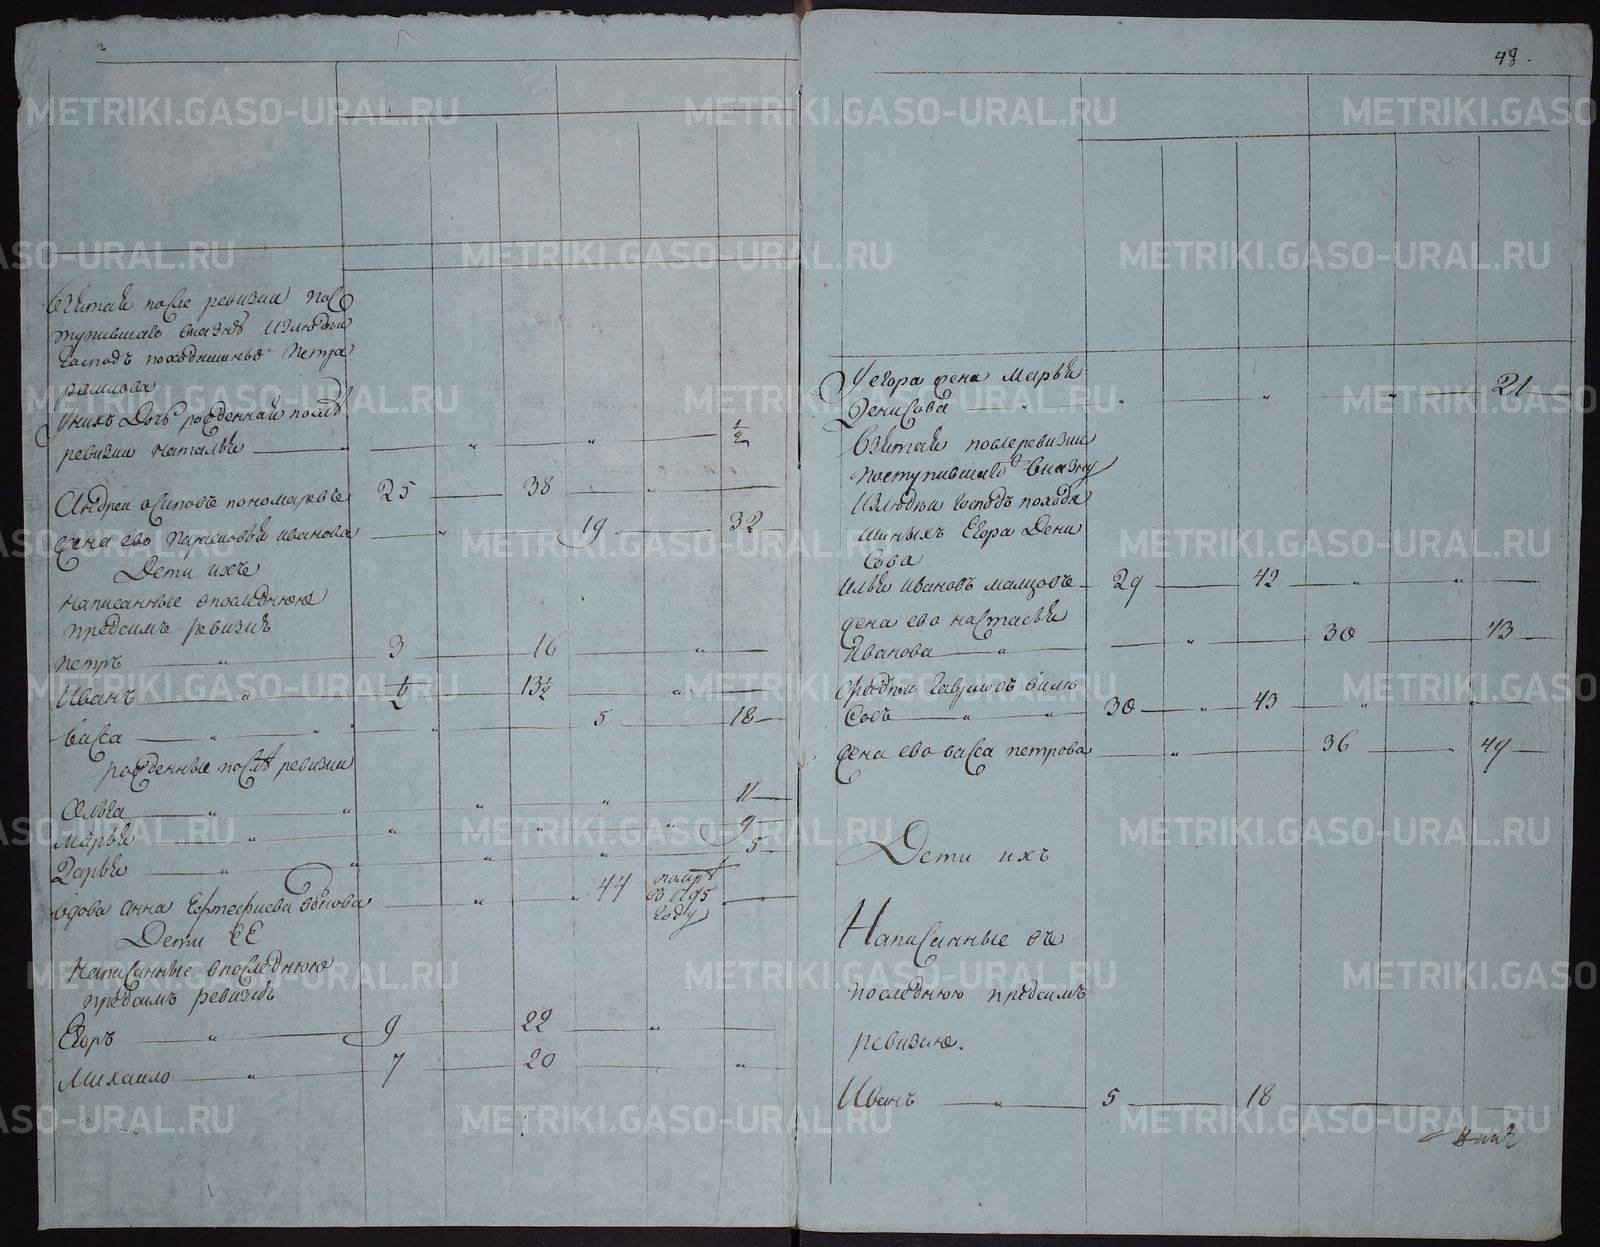 взятай после ревизии пос
тупившаго вказнѣ излюдеи
господъ походяшиныхъ Петра
рашлова
уних дочь рожденнай послѣ
ревизии наталья " " " 1/2
Андреи осиповъ пономаревъ 25 38 "
жена ево парасковья иванова " 19 32
Дети ихъ
написанные впоследнюю
предсимъ ревизиѣ
петръ " 3 16 "
Иванъ " 1/2 13 1/2 "
васса " " " 5 18
рожденные послѣ ревизии
Ольга " " " " 11
марья " " " " 9
Дарья " " " " 5
вдова анна 44 померъ
въ 1795
году
Дети ЕЕ
написанные впоследнюю
предсимъ ревизиѣ
Егоръ " 9 22 "
Михаило " 7 20 "
48.
У егора жена Марья
Денисова " " " " 21
взятай послеревизии
поступившаго вказну
излюдеи господъ походя
шиныхъ Егора Дени
сова
Илья Ивановъ малцовъ 29 42 " "
жена ево настасья
Иванова " " 30 43
совъ " " 30 " 43 " "
жена ево васса петрова " 36 " 49
Дети ихъ
Написанные въ
последнюю предсимъ
ревизию.
Иванъ " 5 18